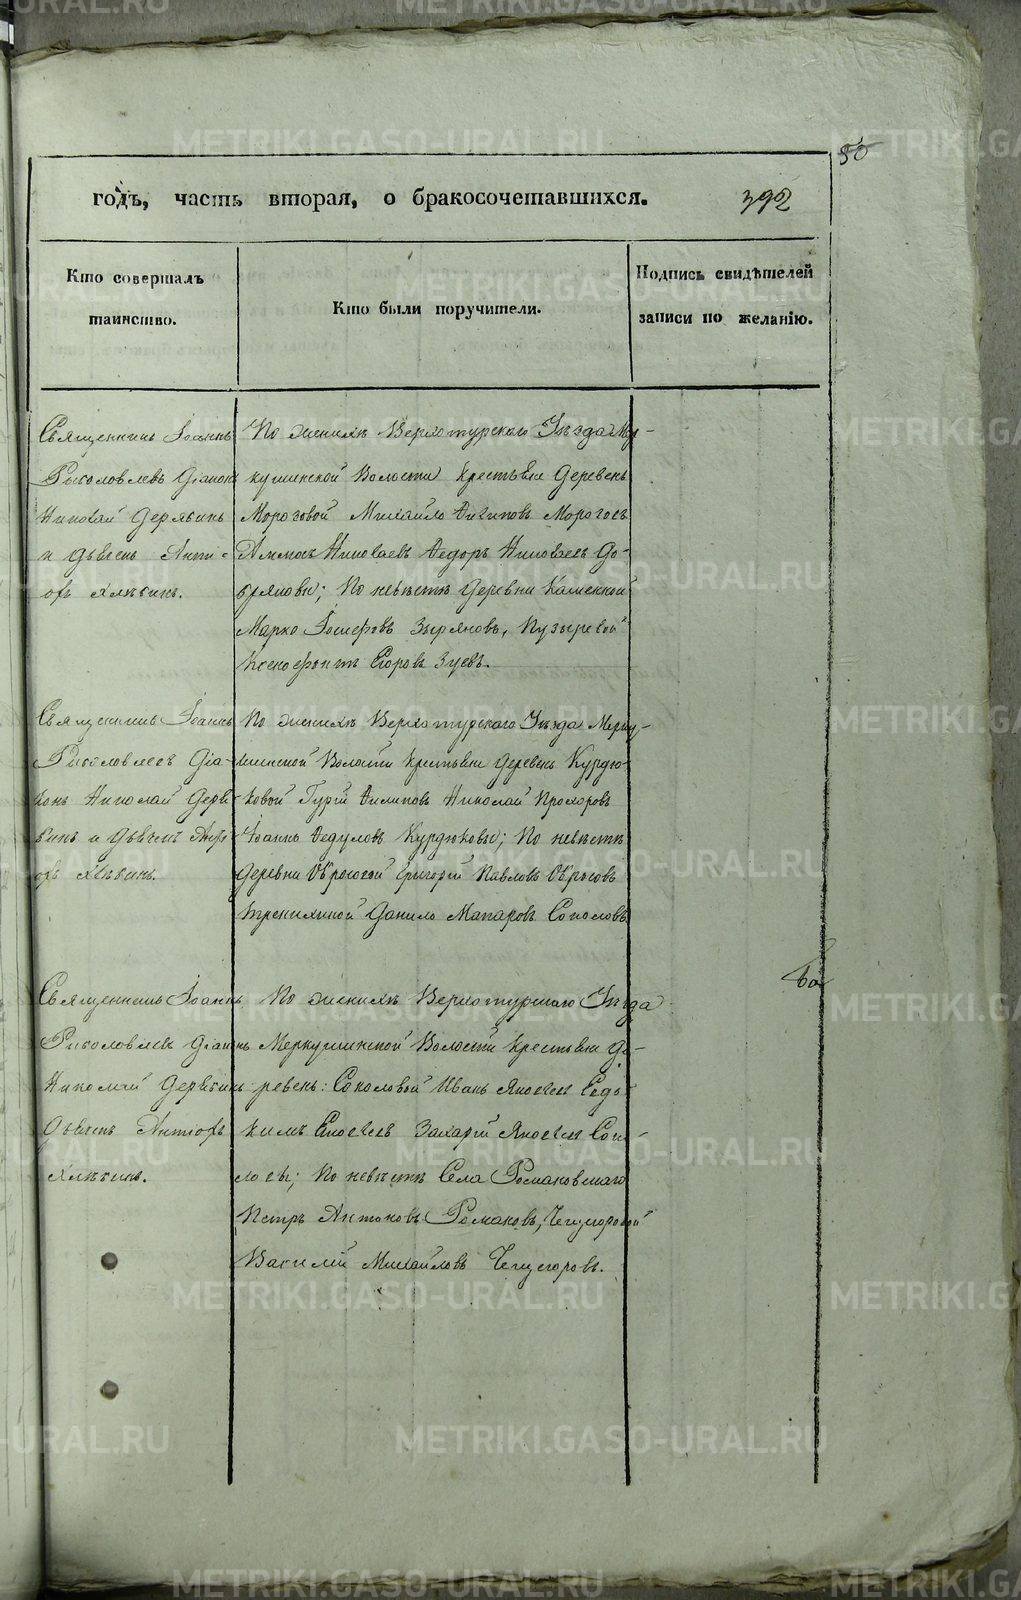 85
годъ, часть вторая, о бракосочетавшихся.
392
Кто совершалъ
таинство.
Кто были поручители.
Подпись свидѣтелей
записи по желанію.
Священникъ Іоаннъ
Діаконъ
Николай
и дьячекъ
Хлѣбинъ.
По женихѣ Верхотурскаго Уѣзда Мер-
кушинской Волости Крестьяне Деревень
Морозовой Михайло Филиповъ Морозовъ
Николаевъ Федоръ Николаевъ
По невѣстѣ деревни Каменной
Марко Іосифовъ Зыряновъ, Пузыревой
Ксенофонтъ Егоровъ Зуевъ.
Священникъ Іоаннъ
Діа-
конъ Николай
и дьячекъ
Хлѣбинъ.
По женихѣ Верхотурскаго Уѣзда Мерку-
шинской Волости Крестьяне деревень Курдю-
ковой Гурій Филиповъ Николай Прохоровъ
Іоаннъ Федуловъ Курдюковы; По невѣстѣ
деревни Григорій Павловъ
Данило Макаровъ Соколовъ
Священникъ Іоаннъ
Діаконъ
Николай
Дьячекъ
Хлѣбинъ.
По женихѣ Верхотурскаго Уѣзда
Меркушинской Волости Крестьяне де-
ревень: Соколовой Иванъ Яковлевъ
Яковлевъ Захарій Яковлевъ Соко-
ловы; По невѣстѣ Села Романовскаго
Петръ Антоновъ Романовъ, Чещегоровой
Василій Михайловъ Чещегоровъ.
METRIKI.GASO-URAL.RU